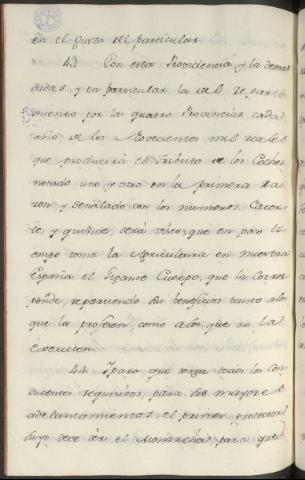 en el giro del particular.
43. Con esta Providencia, y la demas
dadas, y en particular la del reparti-
miento por la quatro Provincias cada
año de los Novecientos mil reales
que producirá el tributo de los Coches
notado uno, y otro en la primera ra-
zon, y señalado con los numeros, Cator-
ce, y quince, será visto, que en poco ti-
empo toma la Agricultura en nuestra
España el Gigante Cuerpo, que la Corres-
ponde, repartiendo sus beneficios tanto alos
que la profesen, como alos que no la
Exerciten.
44. Ypara que tenga todos los con-
ducentes requisitos, para sus mayores
adelantamientos, el primer protector
suyo deve ser el Monarcha, para que